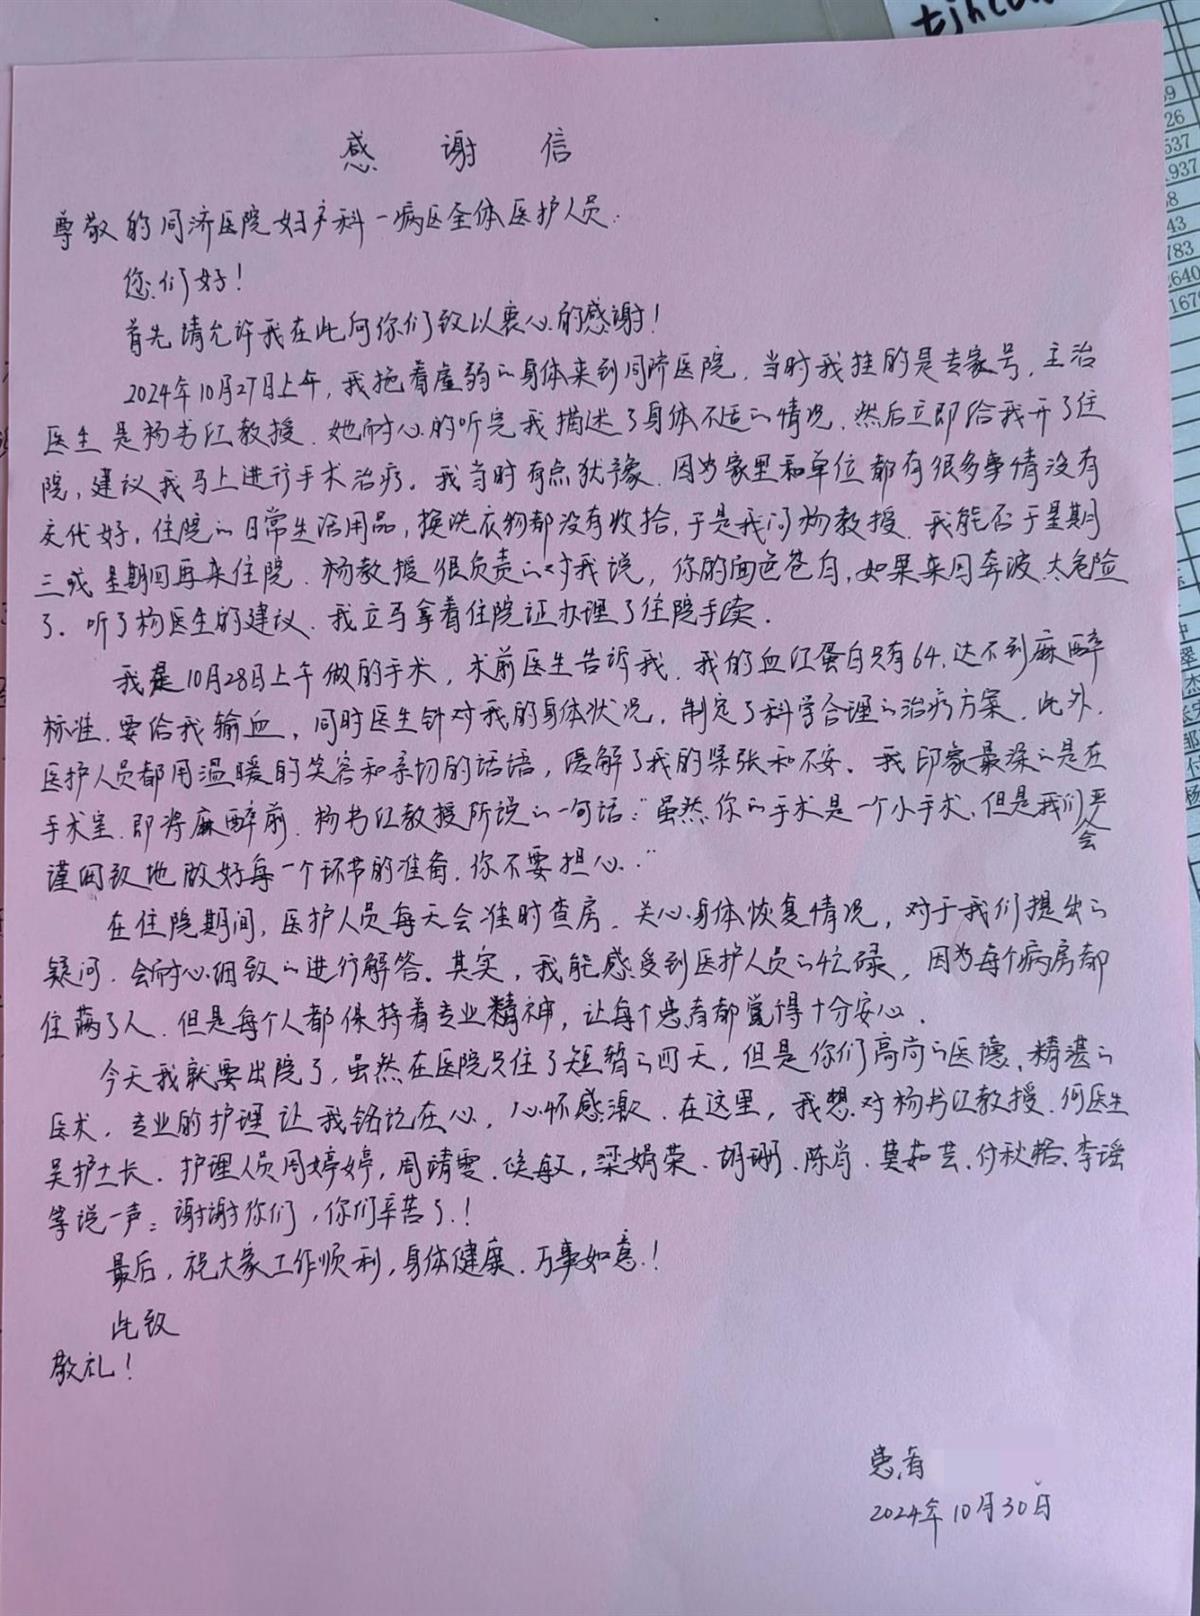 tjhcu
感谢信
尊敬的同济医院妇产科一病区全体医护人员:
您们好!
首先请允许我在此向你们致以衷心的感谢!
2024年10月27日上午,我拖着虚弱的身体来到同济医院,当时我挂的是专家号,主治
医生是杨书红教授.她耐心的听完我描述了身体不适的情况,然后立即给我开了住
院,建议我马上进行手术治疗。我当时有点犹豫,因为家里和单位都有很多事情没有
交代好,住院的日常生活用品,换洗衣物都没有收拾,于是我问杨教授,我能否于星期
三或星期四再来住院.杨教授很负责的对我说,你的面色苍白,如果来回奔波,太危险
了.听了杨医生的建议,我立马拿着住院证办理了住院手续.
我是10月28日上午做的手术,术前医生告诉我,我的血红蛋白只有64,达不到麻醉
标准,要给我输血,同时医生针对我的身体状况,制定了科学合理的治疗方案,此外,
医护人员都用温暖的笑容和亲切的话语,缓解了我的紧张和不安。我印象最深的是在
手术室,即将麻醉前,杨书红教授所说的一句话:"虽然你的手术是一个小手术,但是我们会严
谨细致地做好每一个环节的准备,你不要担心."
在住院期间,医护人员每天会准时查房,关心身体恢复情况,对于我们提出的
疑问,会耐心细致的进行解答。其实,我能感受到医护人员的忙碌,因为每个病房都
住满了人,但是每个人都保持着专业精神,让每个患者都觉得十分安心.
今天我就要出院了,虽然在医院只住了短暂的四天,但是你们高尚的医德、精湛的
医术,专业的护理让我铭记在心,心怀感激.在这里,我想对杨书红教授.何医生
吴护士长.护理人员周婷婷,周靖雯、侯敏,梁娟荣.胡珊.陈肖.莫茹芸、付秋、李瑶
等说一声:谢谢你们,你们辛苦了!
最后,祝大家工作顺利,身体健康.万事如意!
此致
敬礼!
患者
2024年10月30日
26
537
1937
43
783
2640
1679